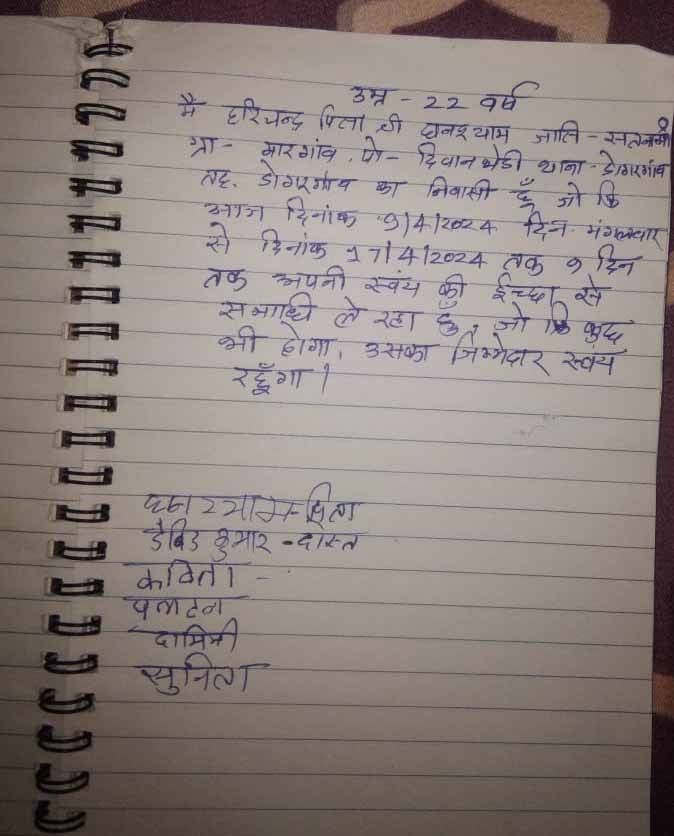 उम्र - 22 वर्ष
मैं हरिचन्द्र पिता श्री घनश्याम जाति - सतनामी
ग्रा - मारगांव, पो - दिवानभेडी थाना - डोंगरगांव
तह. डोंगरगांव का निवासी हूँ जो कि
आज दिनांक 9/4/2024 दिन मंगलवार
से दिनांक 17/4/2024 तक 9 दिन
तक अपनी स्वंय की ईच्छा से
समाधी ले रहा हूँ, जो कि कुछ
भी होगा, उसका जिम्मेदार स्वंय
रहूँगा।
घनश्याम - पिता
डेविड कुमार - दोस्त
कविता -
दामिनी
सुनिता